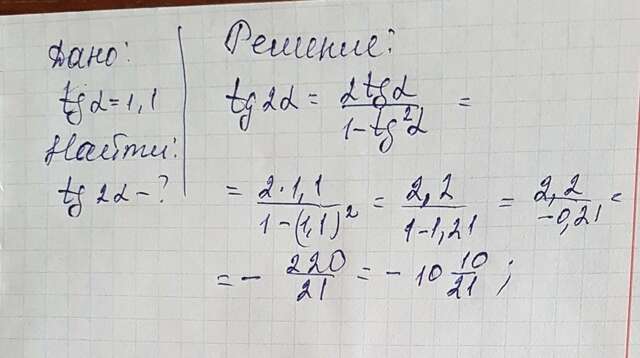 Дано:
tgα=1,1
Найти:
tg2α-?
Решение:
tg2α = 2tgα/1-tg²α =
= 2·1,1/1-(1,1)² = 2,2/1-1,21 = 2,2/-0,21 =
= - 220/21 = - 10 10/21;